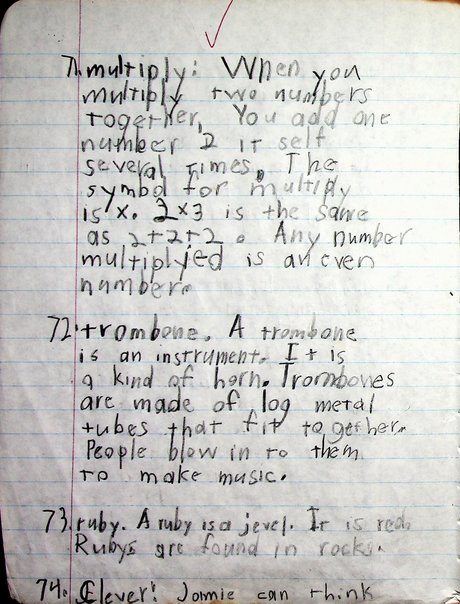 71. multiply: When you
multiply two numbers
together, You add one
number 2 it self
several times. The
symbol for multiply
is x. 2x3 is the same
as 2+2+2. Any number
multiplyed is an even
number.
72. trombone. A trombone
is an instrument. It is
a kind of horn. Trombones
are made of log metal
tubes that fit together.
People blow in to them
to make music.
73. ruby. A ruby is a jevel. It is red.
Rubys are found in rocks.
74. Clever: Jamie can think